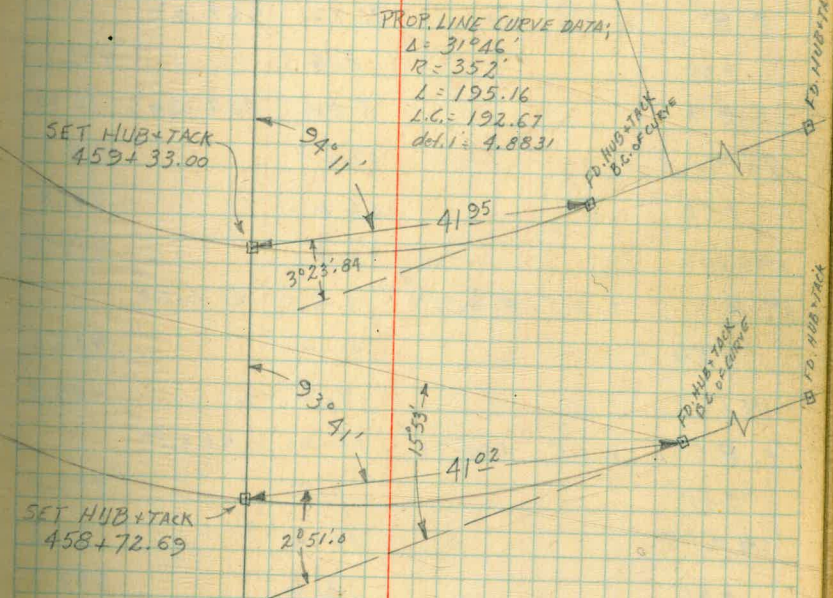 PROP. LINE CURVE DATA;
Δ = 31°46'
R = 352'
L = 195.16
L.C. = 192.67
def. 1' = 4.8831
SET HUB + TACK
459 + 33.00
94° 11'
FD. HUB + TACK
B.C. OF CURVE
FD. HUB + TACK
41 95
3°23'.84
93° 41'
15°53'
FD. HUB + TACK
B.C. OF CURVE
FD. HUB + TACK
41 02
SET HUB + TACK
458 + 72.69
2°51'.0